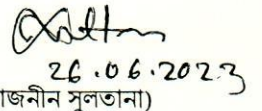 26.06.2023
জনীন সুলতানা)